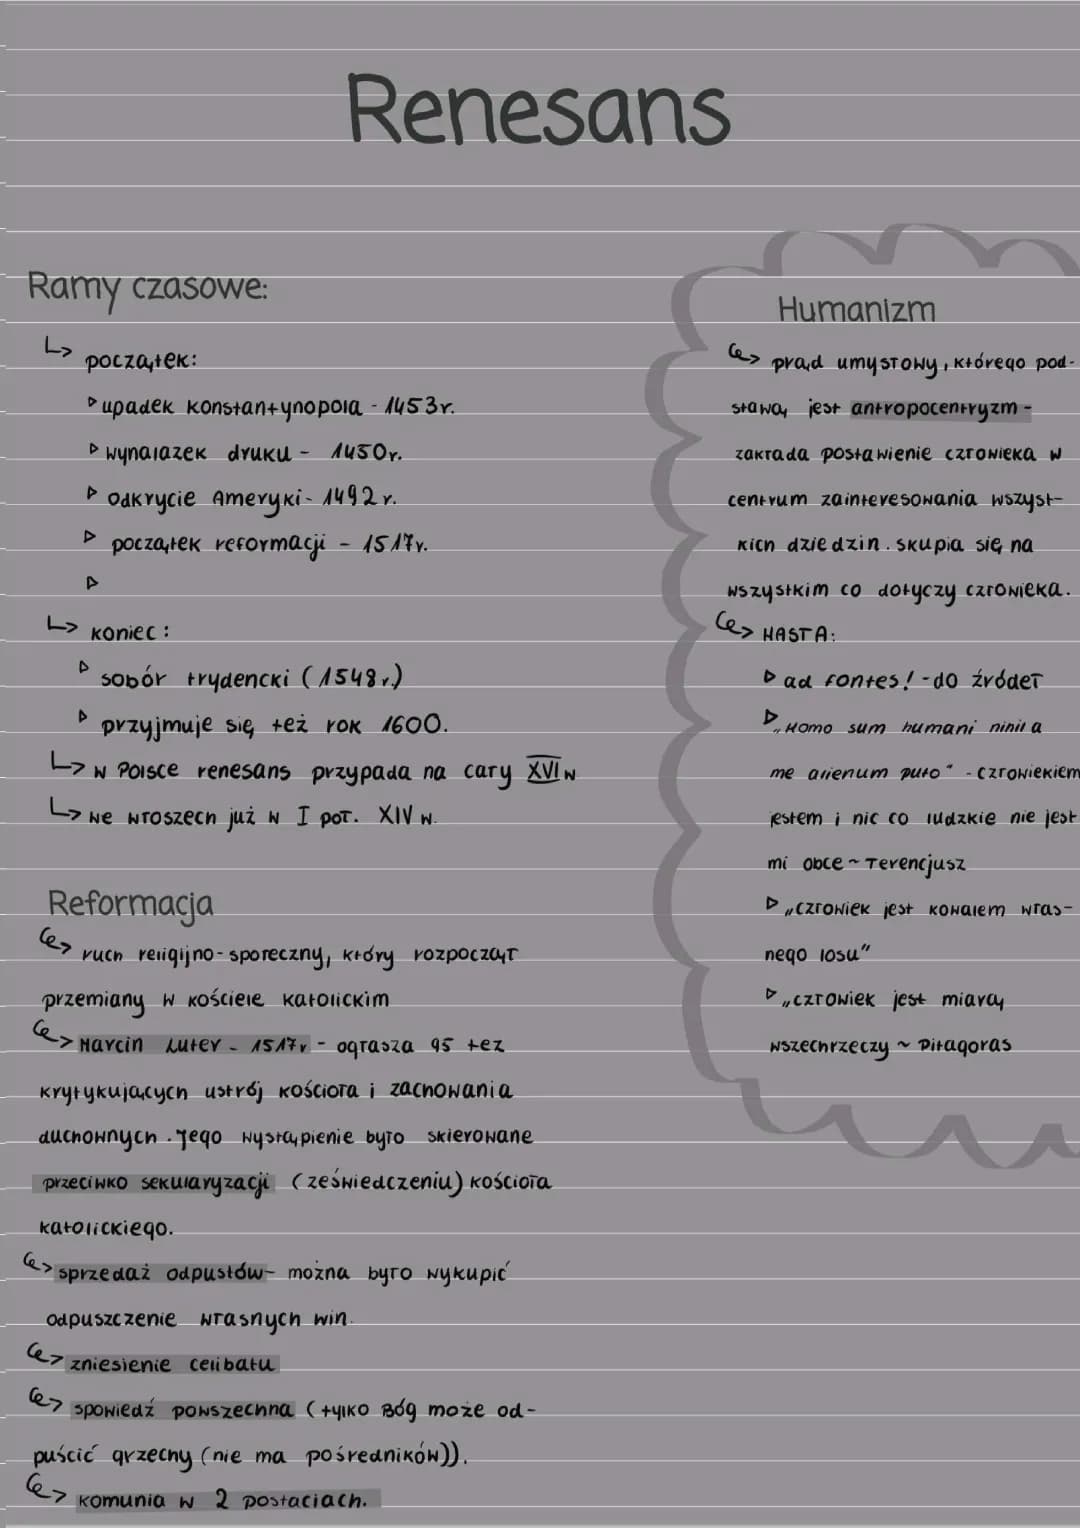 Renesans
Ramy czasowe:
↳ początek:
▹ upadek Konstantynopola - 1453r.
▹ wynalazek druku - 1450r.
▹ odkrycie Ameryki - 1492r.
▹ początek reformacji - 1517r.
▹
↳ koniec:
▹ sobór trydencki (1548r.)
▹ przyjmuje się też rok 1600.
↳ w Polsce renesans przypada na cały XVI w
↳ we włoszech już w I poł. XIV w.
Reformacja
↳ ruch religijno-społeczny, który rozpoczął
przemiany w kościele katolickim
↳ Marcin Luter - 1517r - ogłasza 95 tez
krytykujących ustrój kościoła i zachowania
duchownych. Jego wystąpienie było skierowane
przeciwko sekularyzacji (zeświedczeniu) kościoła
katolickiego.
↳ sprzedaż odpustów - można było wykupić
odpuszczenie własnych win.
↳ zniesienie celibatu
↳ spowiedź powszechna (tylko Bóg może od-
puścić grzechy (nie ma pośredników)).
↳ komunia w 2 postaciach.
Humanizm
↳ prąd umysłowy, którego pod-
stawą jest antropocentryzm -
zakłada postawienie człowieka w
centrum zainteresowania wszyst-
kich dziedzin. skupia się na
wszystkim co dotyczy człowieka.
↳ HASŁA:
▹ ad fontes! - do źródeł
▹ „Homo sum humani nihil a
me alienum puto" - człowiekiem
jestem i nic co ludzkie nie jest
mi obce ~ Terencjusz
▹ „człowiek jest kowalem włas-
nego losu"
▹ „człowiek jest miarą
wszechrzeczy ~ Pitagoras